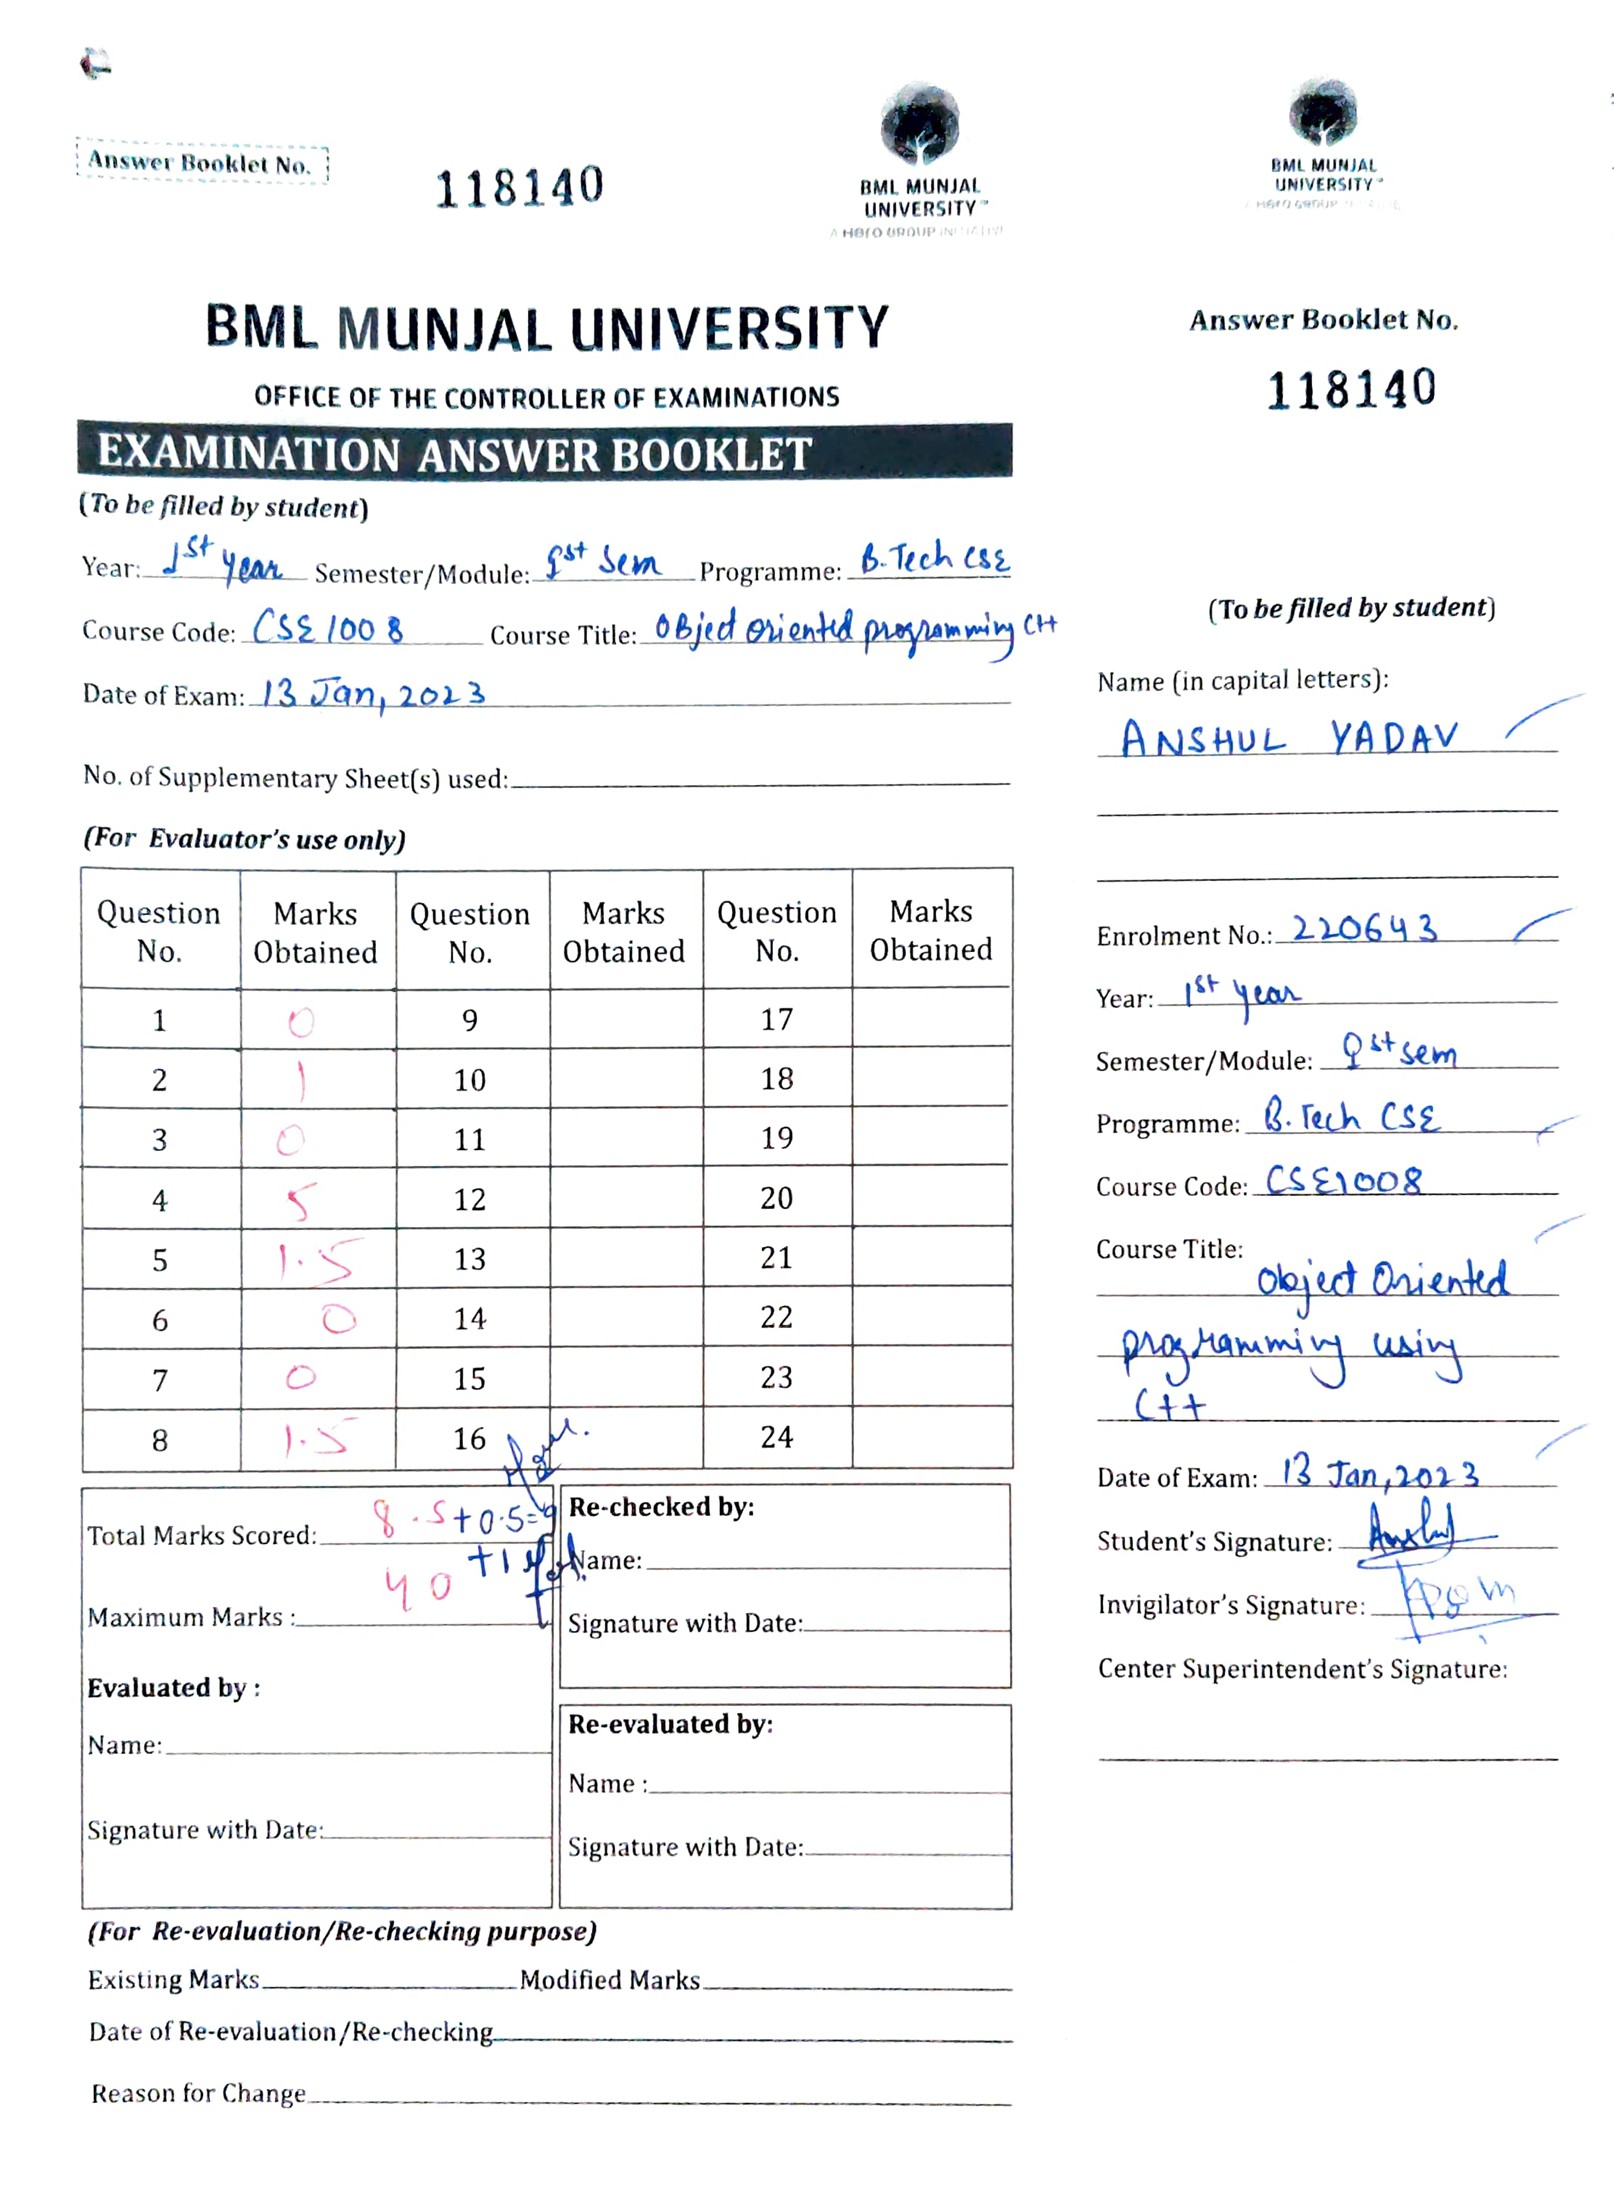 Answer Booklet No.
118140
BML MUNJAL
UNIVERSITY
A HERO GROUP INITIATIVE
BML MUNJAL UNIVERSITY
OFFICE OF THE CONTROLLER OF EXAMINATIONS
EXAMINATION ANSWER BOOKLET
(To be filled by student)
Year: 1st year Semester/Module: 1st Sem Programme: B.Tech CSE
Course Code: CSE 1008 Course Title: Object oriented programming C++
Date of Exam: 13 Jan, 2023
No. of Supplementary Sheet(s) used:
(For Evaluator's use only)
Question No. Marks Obtained Question No. Marks Obtained Question No. Marks Obtained
1 0 9 17
2 1 10 18
3 0 11 19
4 5 12 20
5 1.5 13 21
6 0 14 22
7 0 15 23
8 1.5 16 24
Total Marks Scored: 8.5 +0.5=9
+1
Maximum Marks : 40
Evaluated by :
Name:
Signature with Date:
Re-checked by:
Name:
Signature with Date:
Re-evaluated by:
Name :
Signature with Date:
(For Re-evaluation/Re-checking purpose)
Existing Marks Modified Marks
Date of Re-evaluation/Re-checking
Reason for Change
BML MUNJAL
UNIVERSITY
A HERO GROUP INITIATIVE
Answer Booklet No.
118140
(To be filled by student)
Name (in capital letters):
ANSHUL YADAV
Enrolment No.: 220643
Year: 1st year
Semester/Module: 1st sem
Programme: B.Tech CSE
Course Code: CSE1008
Course Title:
Object Oriented
programming using
C++
Date of Exam: 13 Jan, 2023
Student's Signature: Anshul
Invigilator's Signature:
Center Superintendent's Signature: